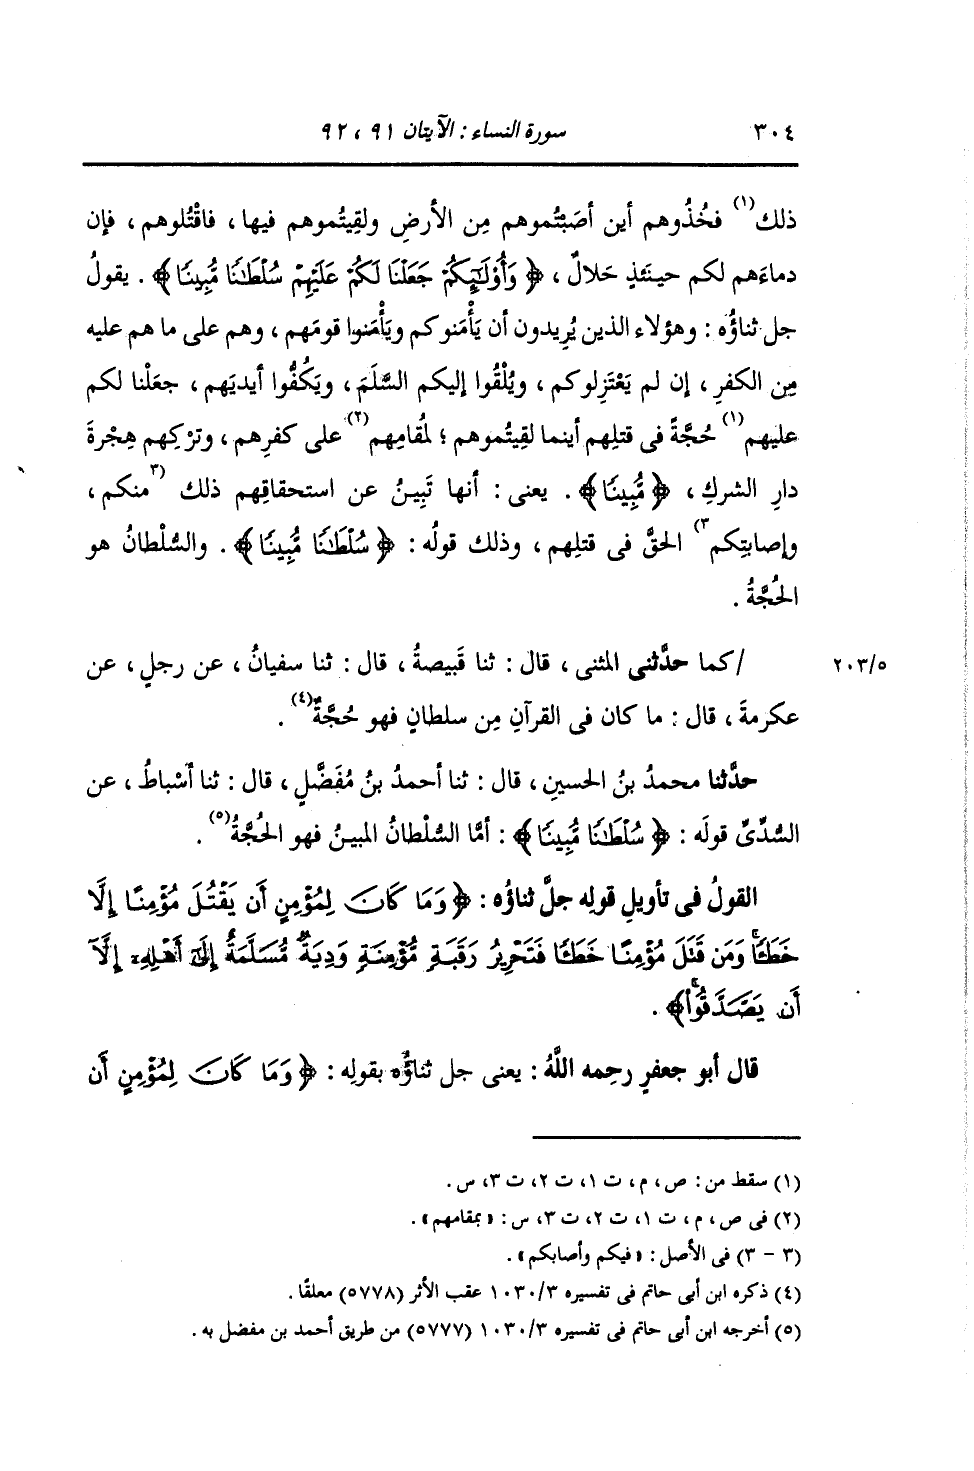 ٣٠٤ سورة النساء : الآيتان ٩١ ، ٩٢
ذلك(١) فخُذُوهم أين أصَبْتُموهم مِن الأرضِ ولقِيتُموهم فيها ، فاقْتُلوهم ، فإن
دماءَهم لكم حينَئذٍ حَلالٌ ، ﴿ وَأُوْلَٰٓئِكُمْ جَعَلْنَا لَكُمْ عَلَيْهِمْ سُلْطَٰنًا مُّبِينًا ﴾ . يقولُ
جل ثناؤُه : وهؤلاء الذين يُرِيدون أن يَأْمَنوكم ويَأْمَنوا قومَهم ، وهم على ما هم عليه
مِن الكفرِ ، إن لم يَعْتَزِلوكم ، ويُلْقُوا إليكم السَّلَمَ ، ويَكُفُّوا أيديَهم ، جعَلْنا لكم
عليهم(١) حُجَّةً فى قتلِهم أينما لقِيتُموهم ؛ لمُقامِهم(٢) على كفرِهم ، وتركِهم هِجْرةَ
دارِ الشركِ ، ﴿ مُّبِينًا ﴾ . يعنى : أنها تَبِينُ عن استحقاقِهم ذلك (٣منكم ،
وإصابتِكم٣) الحقَّ فى قتلِهم ، وذلك قولُه : ﴿ سُلْطَٰنًا مُّبِينًا ﴾ . والسُّلْطانُ هو
الحُجَّةُ .
٢٠٣/٥ /كما حدَّثنى المثنى ، قال : ثنا قَبيصةُ ، قال : ثنا سفيانُ ، عن رجلٍ ، عن
عكرمةَ ، قال : ما كان فى القرآنِ مِن سلطانٍ فهو حُجَّةٌ(٤) .
حدَّثنا محمدُ بنُ الحسينِ ، قال : ثنا أحمدُ بنُ مُفَضَّلٍ ، قال : ثنا أسْباطُ ، عن
السُّدِّىِّ قولَه : ﴿ سُلْطَٰنًا مُّبِينًا ﴾ : أمَّا السُّلْطانُ المبينُ فهو الحُجَّةُ(٥) .
القولُ فى تأويلِ قولِه جلَّ ثناؤُه : ﴿ وَمَا كَانَ لِمُؤْمِنٍ أَن يَقْتُلَ مُؤْمِنًا إِلَّا
خَطَـًٔا ۚ وَمَن قَتَلَ مُؤْمِنًا خَطَـًٔا فَتَحْرِيرُ رَقَبَةٍ مُّؤْمِنَةٍ وَدِيَةٌ مُّسَلَّمَةٌ إِلَىٰٓ أَهْلِهِۦٓ إِلَّآ
أَن يَصَّدَّقُوا۟ ۚ ﴾ .
قال أبو جعفرٍ رحِمه اللَّهُ : يعنى جل ثناؤُه بقولِه : ﴿ وَمَا كَانَ لِمُؤْمِنٍ أَن
(١) سقط من : ص ، م ، ت ١، ت ٢، ت ٣، س .
(٢) فى ص ، م ، ت ١، ت ٢، ت ٣، س : « بمقامهم » .
(٣ - ٣) فى الأصل : « فيكم وأصابكم » .
(٤) ذكره ابن أبى حاتم فى تفسيره ١٠٣٠/٣ عقب الأثر (٥٧٧٨) معلقًا .
(٥) أخرجه ابن أبى حاتم فى تفسيره ١٠٣٠/٣ (٥٧٧٧) من طريق أحمد بن مفضل به .